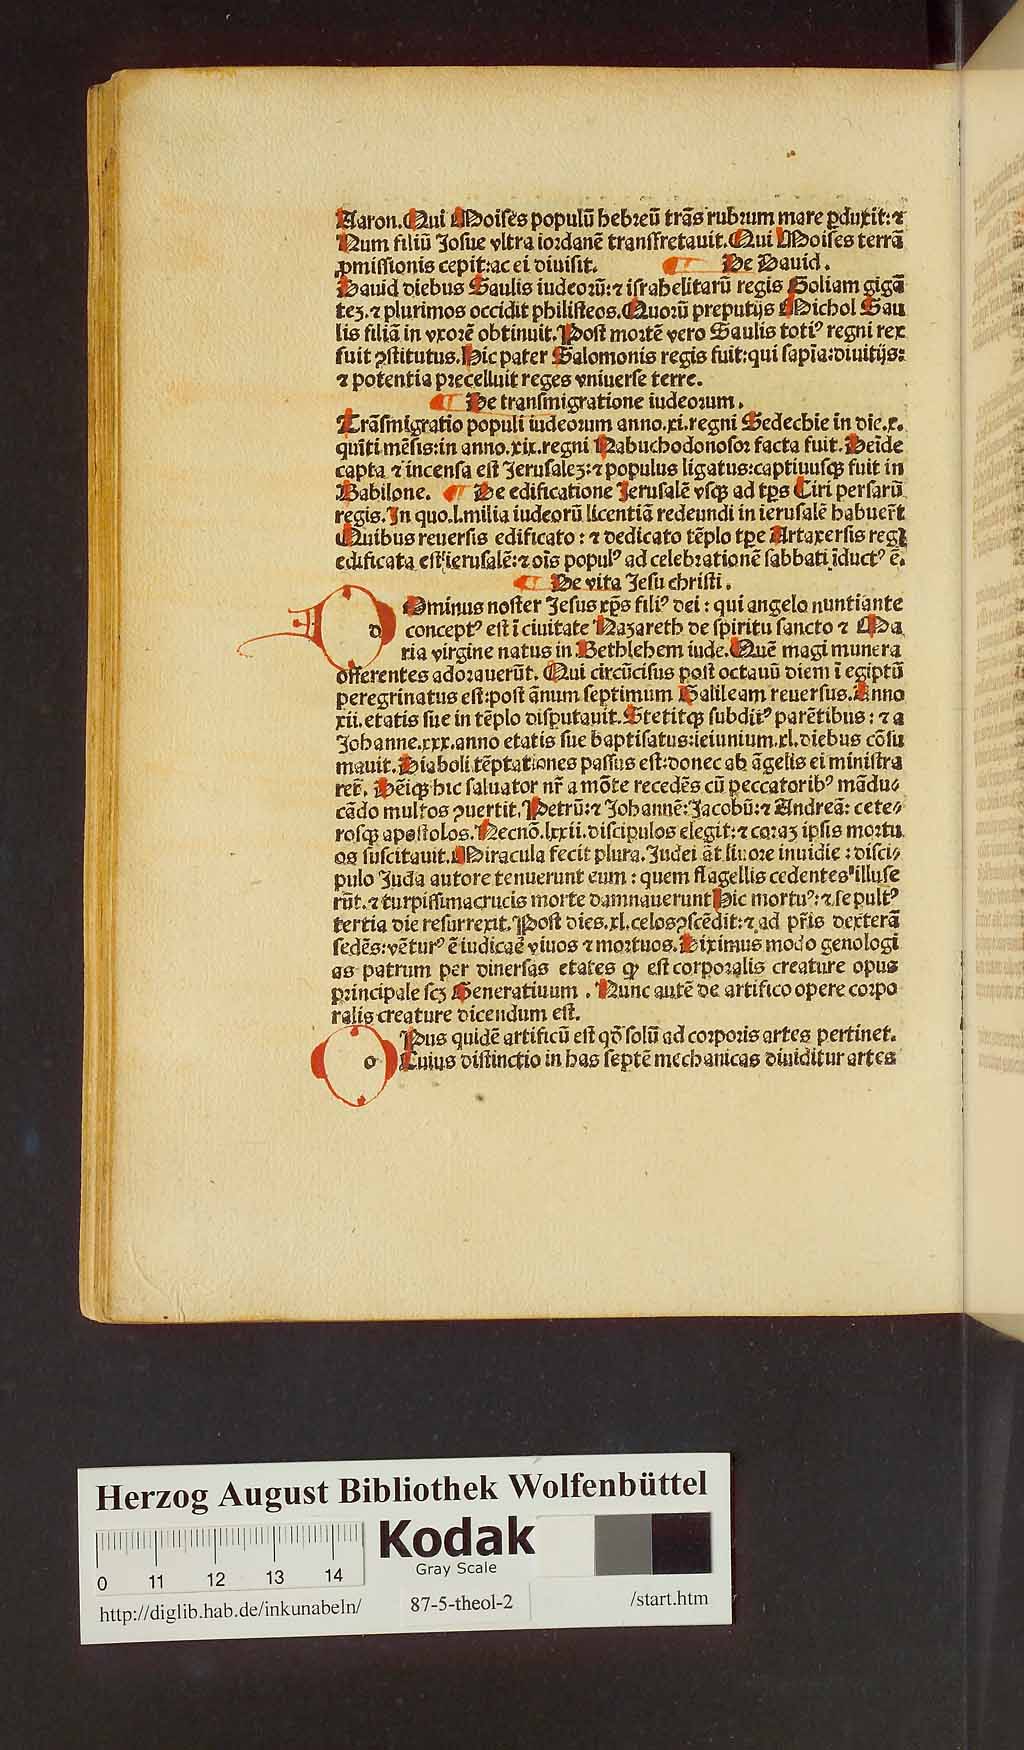 Aaron. Qui Moises populū hebreū trās rubrum mare ꝑduxit: ⁊
Num filiū Josue vltra iordanē transfretauit. Qui Moises terrā
ꝓmissionis cepit: ac ei diuisit. ¶ De Dauid.
Dauid diebus Saulis iudeorū: ⁊ israhelitarū regis Goliam gigā
teʒ. ⁊ plurimos occidit philisteos. Quorū preputijs Michol Sau
lis filiā in vxorē obtinuit. Post mortē vero Saulis totiꝰ regni rex
fuit ꝯstitutus. Hic pater Salomonis regis fuit: qui sapīa: diuitijs:
⁊ potentia precelluit reges vniuerse terre.
¶ De transmigratione iudeorum.
Trāsmigratio populi iudeorum anno. xi. regni Sedechie in die. x.
quīti mēsis: in anno. xix. regni Nabuchodonosor facta fuit. Deīde
capta ⁊ incensa est Jerusaleʒ: ⁊ populus ligatus: captiuusqꝫ fuit in
Babilone. ¶ De edificatione Jerusalē vsqꝫ ad tp̄s Ciri persarū
regis. In quo. l. milia iudeorū licentiā redeundi in ierusalē habuer̄t
Quibus reuersis edificato: ⁊ dedicato tēplo tp̄e Artaxersis regꝭ
edificata est ierusalē: ⁊ oīs populꝰ ad celebrationē sabbati īductꝰ ē.
¶ De vita Jesu christi.
d Ominus noster Jesus xp̄s filiꝰ dei: qui angelo nuntiante
conceptꝰ est ī ciuitate Nazareth de spiritu sancto ⁊ Ma
ria virgine natus in Bethlehem iude. Quē magi munera
offerentes adorauerūt. Qui circūcisus post octauū diem ī egiptū
peregrinatus est: post ānum septimum Galileam reuersus. Anno
xii. etatis sue in tēplo disputauit. Stetitqꝫ subditꝰ parētibus: ⁊ a
Johanne. xxx. anno etatis sue baptisatus: ieiunium. xl. diebus cōsu
mauit. Diaboli tēptationes passus est: donec ab āgelis ei ministra
ret̄. Dēiqꝫ hic saluator nr̄ a mōte recedēs cū peccatoribꝰ mādu⸗
cādo multos ꝯuertit. Petrū: ⁊ Johannē: Jacobū: ⁊ Andreā: cete⸗
rosqꝫ apostolos. Necnō. lxxii. discipulos elegit: ⁊ coraʒ ipsis mortu
os suscitauit. Miracula fecit plura. Judei āt liuore inuidie: disci⸗
pulo Juda autore tenuerunt eum: quem flagellis cedentes illuse
rūt. ⁊ turpissima crucis morte damnauerunt Hic mortuꝰ: ⁊ sepultꝰ
tertia die resurrexit. Post dies. xl. celos ꝯscēdit: ⁊ ad pr̄is dexterā
sedēs: vēturꝰ ē iudicae᷑ viuos ⁊ mortuos. Diximus modo genologi
as patrum per diuersas etates qꝫ est corporalis creature opus
principale scʒ Generatiuum. Nunc autē de artifico opere corpo
ralis creature dicendum est.
o Pus quidē artificū est qd̄ solū ad corporis artes pertinet.
Cuius distinctio in has septē mechanicas diuiditur artes
Herzog August Bibliothek Wolfenbüttel
Kodak
Gray Scale
0 11 12 13 14
http://diglib.hab.de/inkunabeln/ 87-5-theol-2 /start.htm